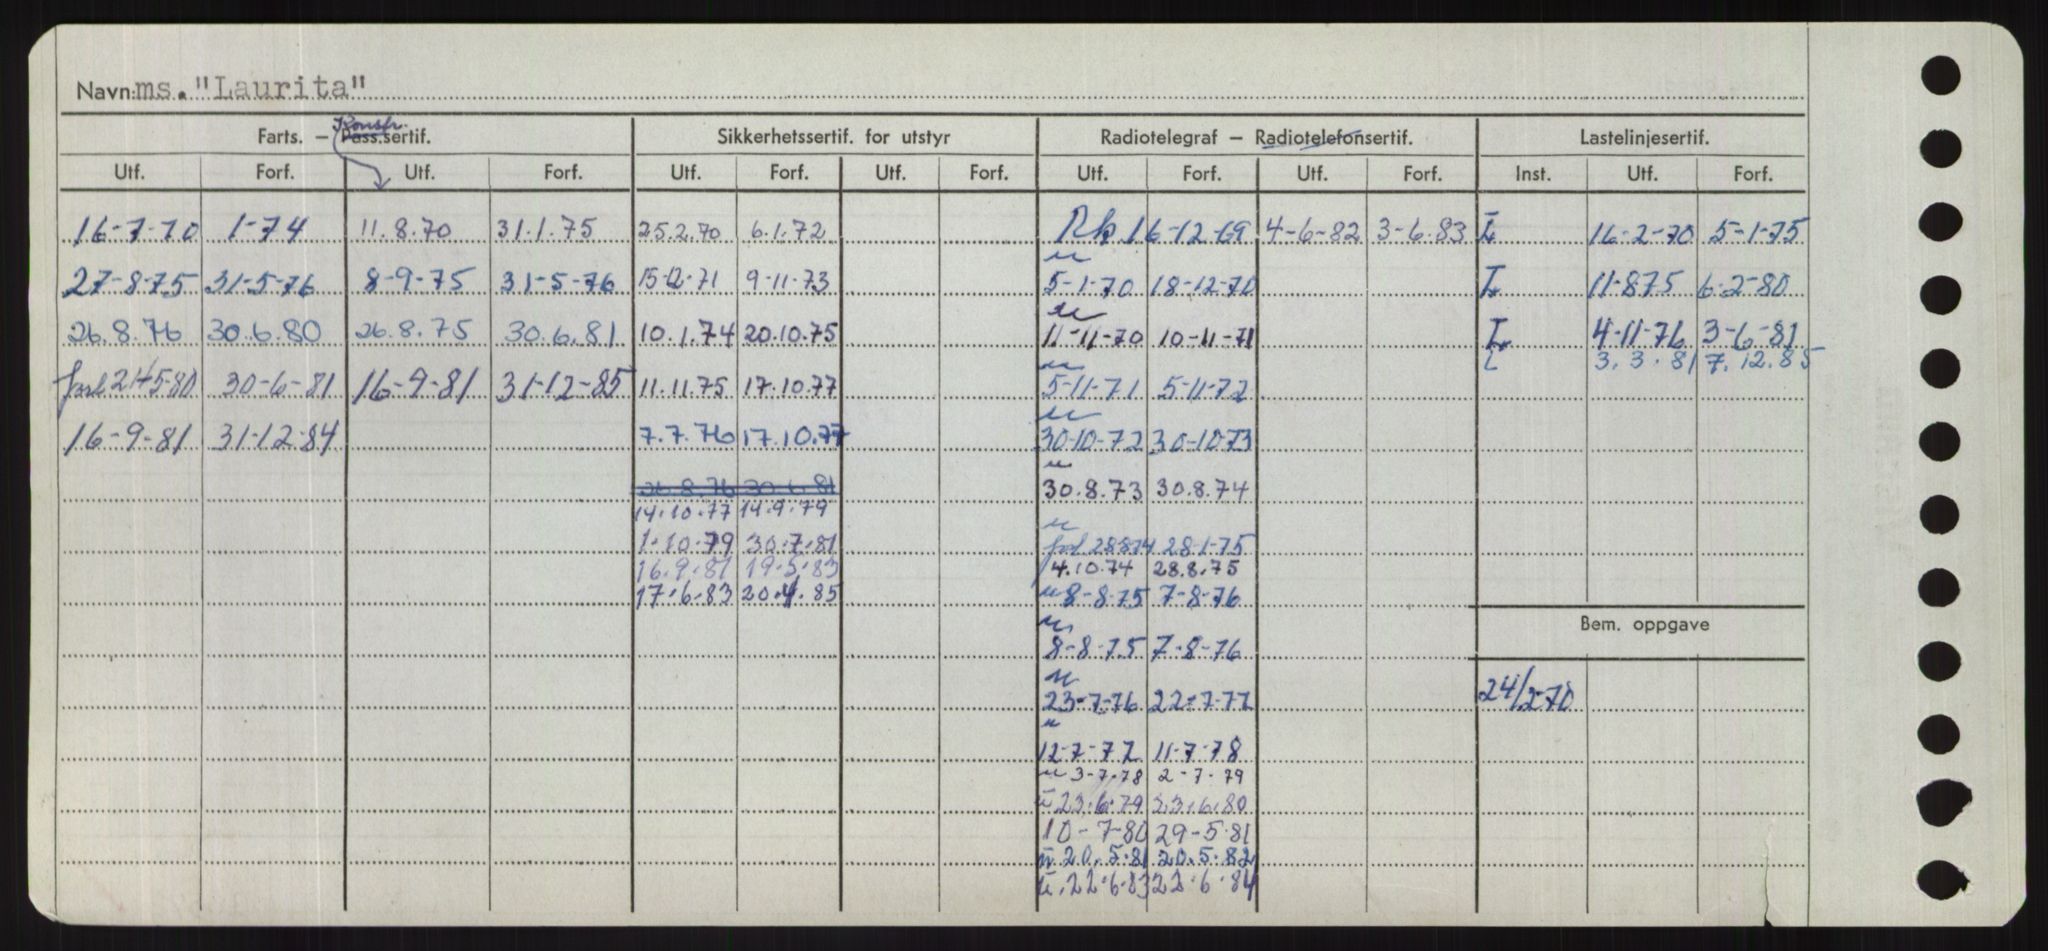 Navn: ms. "Laurita"
Konstr.
Farts. — Pass.sertif. Sikkerhetssertif. for utstyr Radiotelegraf — Radiotelefonsertif. Lastelinjesertif.
Utf. Forf. Utf. Forf. Utf. Forf. Utf. Forf. Utf. Forf. Utf. Forf. Inst. Utf. Forf.
16-7-70 1-74 11.8.70 31.1.75 25.2.70 6.1.72 Rk 16-12-69 4-6-82 3-6.83 L 16-2-70 5-1-75
27-8-75 31-5-76 8-9-75 31-5-76 15-12-71 9-11-73 5-1-70 18-12-70 L 11-875 6-2-80
26.8.76 30.6.80 26.8.75 30.6.81 10.1.74 20.10.75 11-11-70 10-11-71 L 4-11-76 3-6-81
L 3.3.81 7.12.85
forl 21-5-80 30-6-81 16-9-81 31-12-85 11.11.75 17.10.77 5-11-71 5-11-72
16-9-81 31-12-84 7.7.76 17.10.77 30-10-72 30-10-73
26.8.76 30.6.81 30.8.73 30.8.74
14.10.77 14.9.79
1.10.79 30.7.81 forl 28874 28-1-75
16.9.81 19.5.83 4.10.74 28.8.75
17.6.83 20.4.85 8-8-75 7-8-76
Bem. oppgave
8-8-75 7-8-76
23-7-76 22-7-77 24/2-70
12-7-77 11-7-78
3-7-78 2-7-79
23.6.79 23.6.80
10-7-80 29-5-81
20.5.81 20.5.82
22.6.83 22.6.84